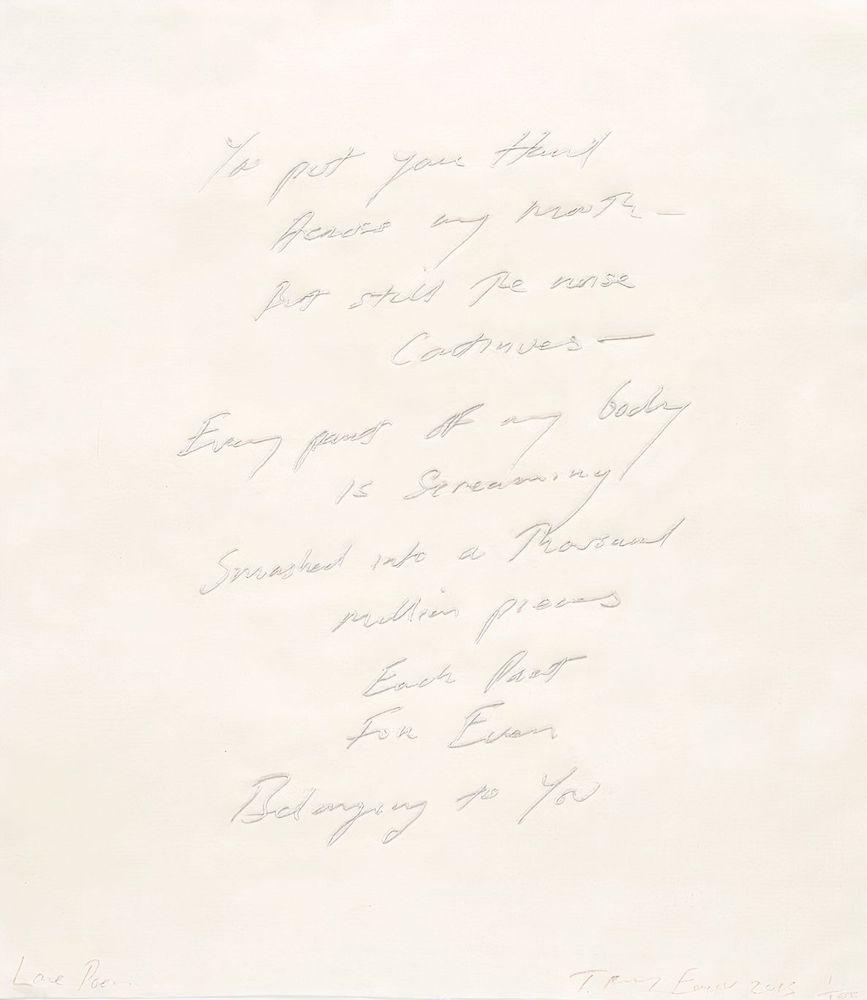 You put your Hand
Across my mouth —
But still The noise
Continues —
Every part OF my body
Is Screaming
Smashed into a Thousand
million pieces
Each Part
For Ever
Belonging to You
Love Poem
Tracey Emin 2013 1/100